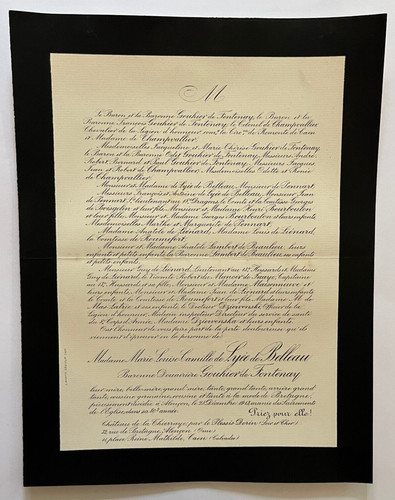 M
Le Baron et la Baronne Gouhier de Fontenay, le Baron et la
Baronne François Gouhier de Fontenay, le Colonel de Champvallier
Chevalier de la Légion d'honneur de Remonte de Caen
et Madame de Champvallier,
Mesdemoiselles Jacqueline et Marie-Thérèse Gouhier de Fontenay,
le Baron et la Baronne Odet Gouhier de Fontenay, Messieurs André
Robert Bernard et Paul Gouhier de Fontenay, Messieurs Jacques
Jean et Robert de Champvallier, Mesdemoiselles Odette et Renée
de Champvallier,
Monsieur et Madame de Lyée de Belleau, Monsieur de
Messieurs François et Antoine de Lyée de Belleau, Monsieur Jean
de Lieutenant au Dragons, le Comte et la Comtesse Georges
de et leur fils, Monsieur et Madame Henri Bourboulon
et leur fille, Monsieur et Madame Georges Bourboulon et leurs enfants
Mesdemoiselles Marthe et Marguerite de
Madame Anatole de Liénard, Madame Louis de Liénard
la Comtesse de
Monsieur et Madame Anatole Lambert de Beaulieu, leurs
enfants et petits enfants, la Baronne Lambert de Beaulieu, ses enfants
et petits enfants,
Monsieur Guy de Liénard, Lieutenant au Hussards et Madame
Guy de Liénard, le Vicomte Robert du Manoir de Juaye, Capitaine
au Hussards et sa fille, Monsieur et Madame Maisonneuve et
leurs enfants, Monsieur et Madame Jean de Liénard et leurs enfants
le Comte et la Comtesse de et leur fille Madame M. de
et ses enfants, le Docteur Dziewonski Officier de la
Légion d'honneur Médecin inspecteur Directeur du service de santé
du Corps d'Armée, Madame Dziewonska et leurs enfants.
Ont l'honneur de vous faire part de la perte douloureuse qu'ils
viennent d'éprouver en la personne de
Madame Marie Louise Camille de Lyée de Belleau
Baronne Douairière Gouhier de Fontenay
leur mère, belle-mère, grand'mère, tante, grand'tante, arrière grand'
tante, cousine germaine, cousine et tante à la mode de Bretagne,
pieusement décédée à Alençon, le Décembre munie des Sacrements
de l'Eglise, dans sa année.
Priez pour elle!
Château de la par le Plessis Dorin (Loir et Cher)
rue de Bretagne, Alençon (Orne)
11, place Reine Mathilde, Caen (Calvados)